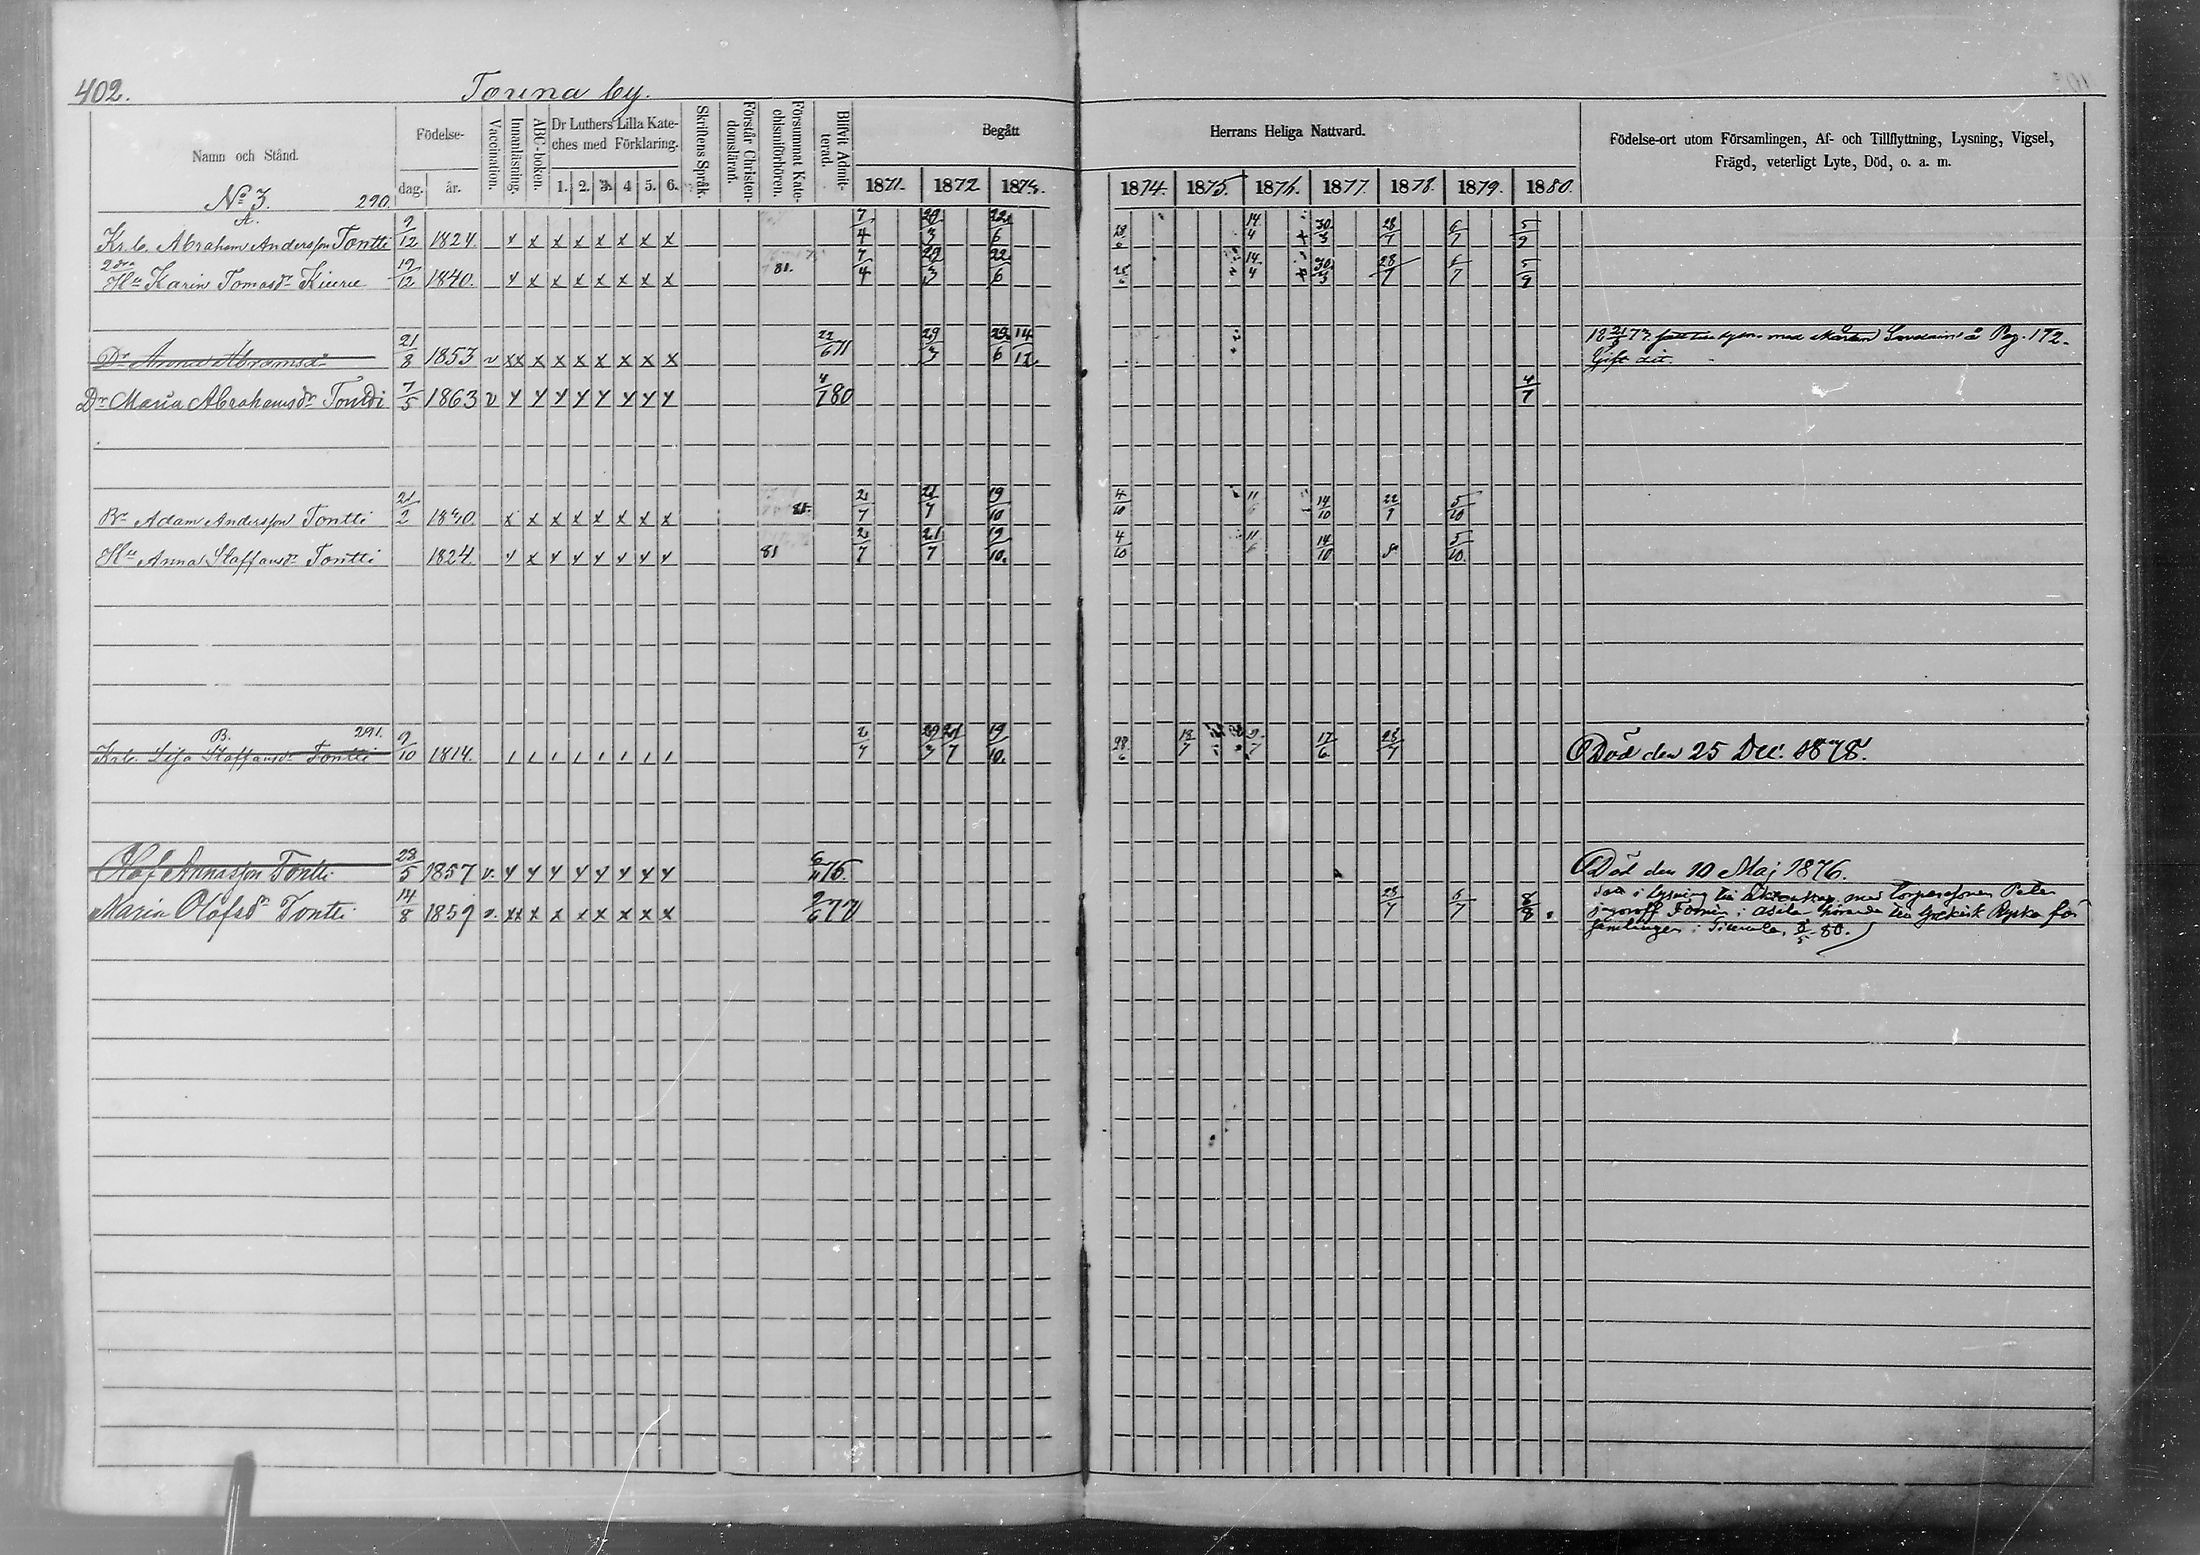 402.
Touna by.
Namn och Stånd.
Födelse-
dag. år.
Vaccination.
Innanläsning.
ABC-boken.
Dr Luthers Lilla Kate-
ches med Förklaring.
1. 2. 3. 4 5. 6.
Skriftens Språk.
Förstår Christen-
domslärad.
Försummat Kate-
chismiförhören.
Blifvit Admit-
terad.
Begått
1871. 1872 1873.
Herrans Heliga Nattvard.
1874. 1875. 1876. 1877. 1878. 1879. 1880.
Födelse-ort utom Församlingen, Af- och Tillflyttning, Lysning, Vigsel,
Frägd, veterligt Lyte, Död, o. a. m.
No 3. 290.
A.
Krb. Abraham Andersson Tontti 9/12 1824. x x x x x x x x 7/4 29/3 22/6 28/6 14/4 30/3 28/7 6/7 5/9
2dra
Hu Karin Tomasdr Kiuru 19/12 1840. x x x x x x x x 81. 7/4 29/3 22/6 28/6 14/4 30/3 28/7 6/7 5/9
Dr Anna Abramsdr 21/8 1853 v xx x x x x x x x 22/6 71 29/3 29/6 14/12 Pag. 172.
Gift dit.
Dr Maria Abrahamsdr Tontti 7/5 1863 v x x x x x x x x 4/7 80 4/7
Br Adam Andersson Tontti 21/2 1830. x x x x x x x x 81. 2/7 21/7 19/10 4/10 11/6 14/10 22/7 5/10
Hu Anna Staffansdr Tontti 1824. x x x x x x x x 81 2/7 21/7 19/10. 4/10 11/6 14/10 5/10.
B. 291.
Krb. Lisa Staffansdr Tontti 9/10 1814. 2/7 29/3 21/7 19/10. 28/6 18/7 9/7 17/6 28/7 Död den 25 Dec. 1878.
Olof Annasson Tontti 28/5 1857 v. x x x x x x x x 6/11 75. Död den 10 Maj 1876.
Maria Olofsdr Tontti 14/8 1859 v. xx x x x x x x x 9/6 77 28/7 6/7 8/8
i lysning till äktenskap med torparesonen Peter
i Asila hörande till Grekisk Ryska för
samlingen i 80.